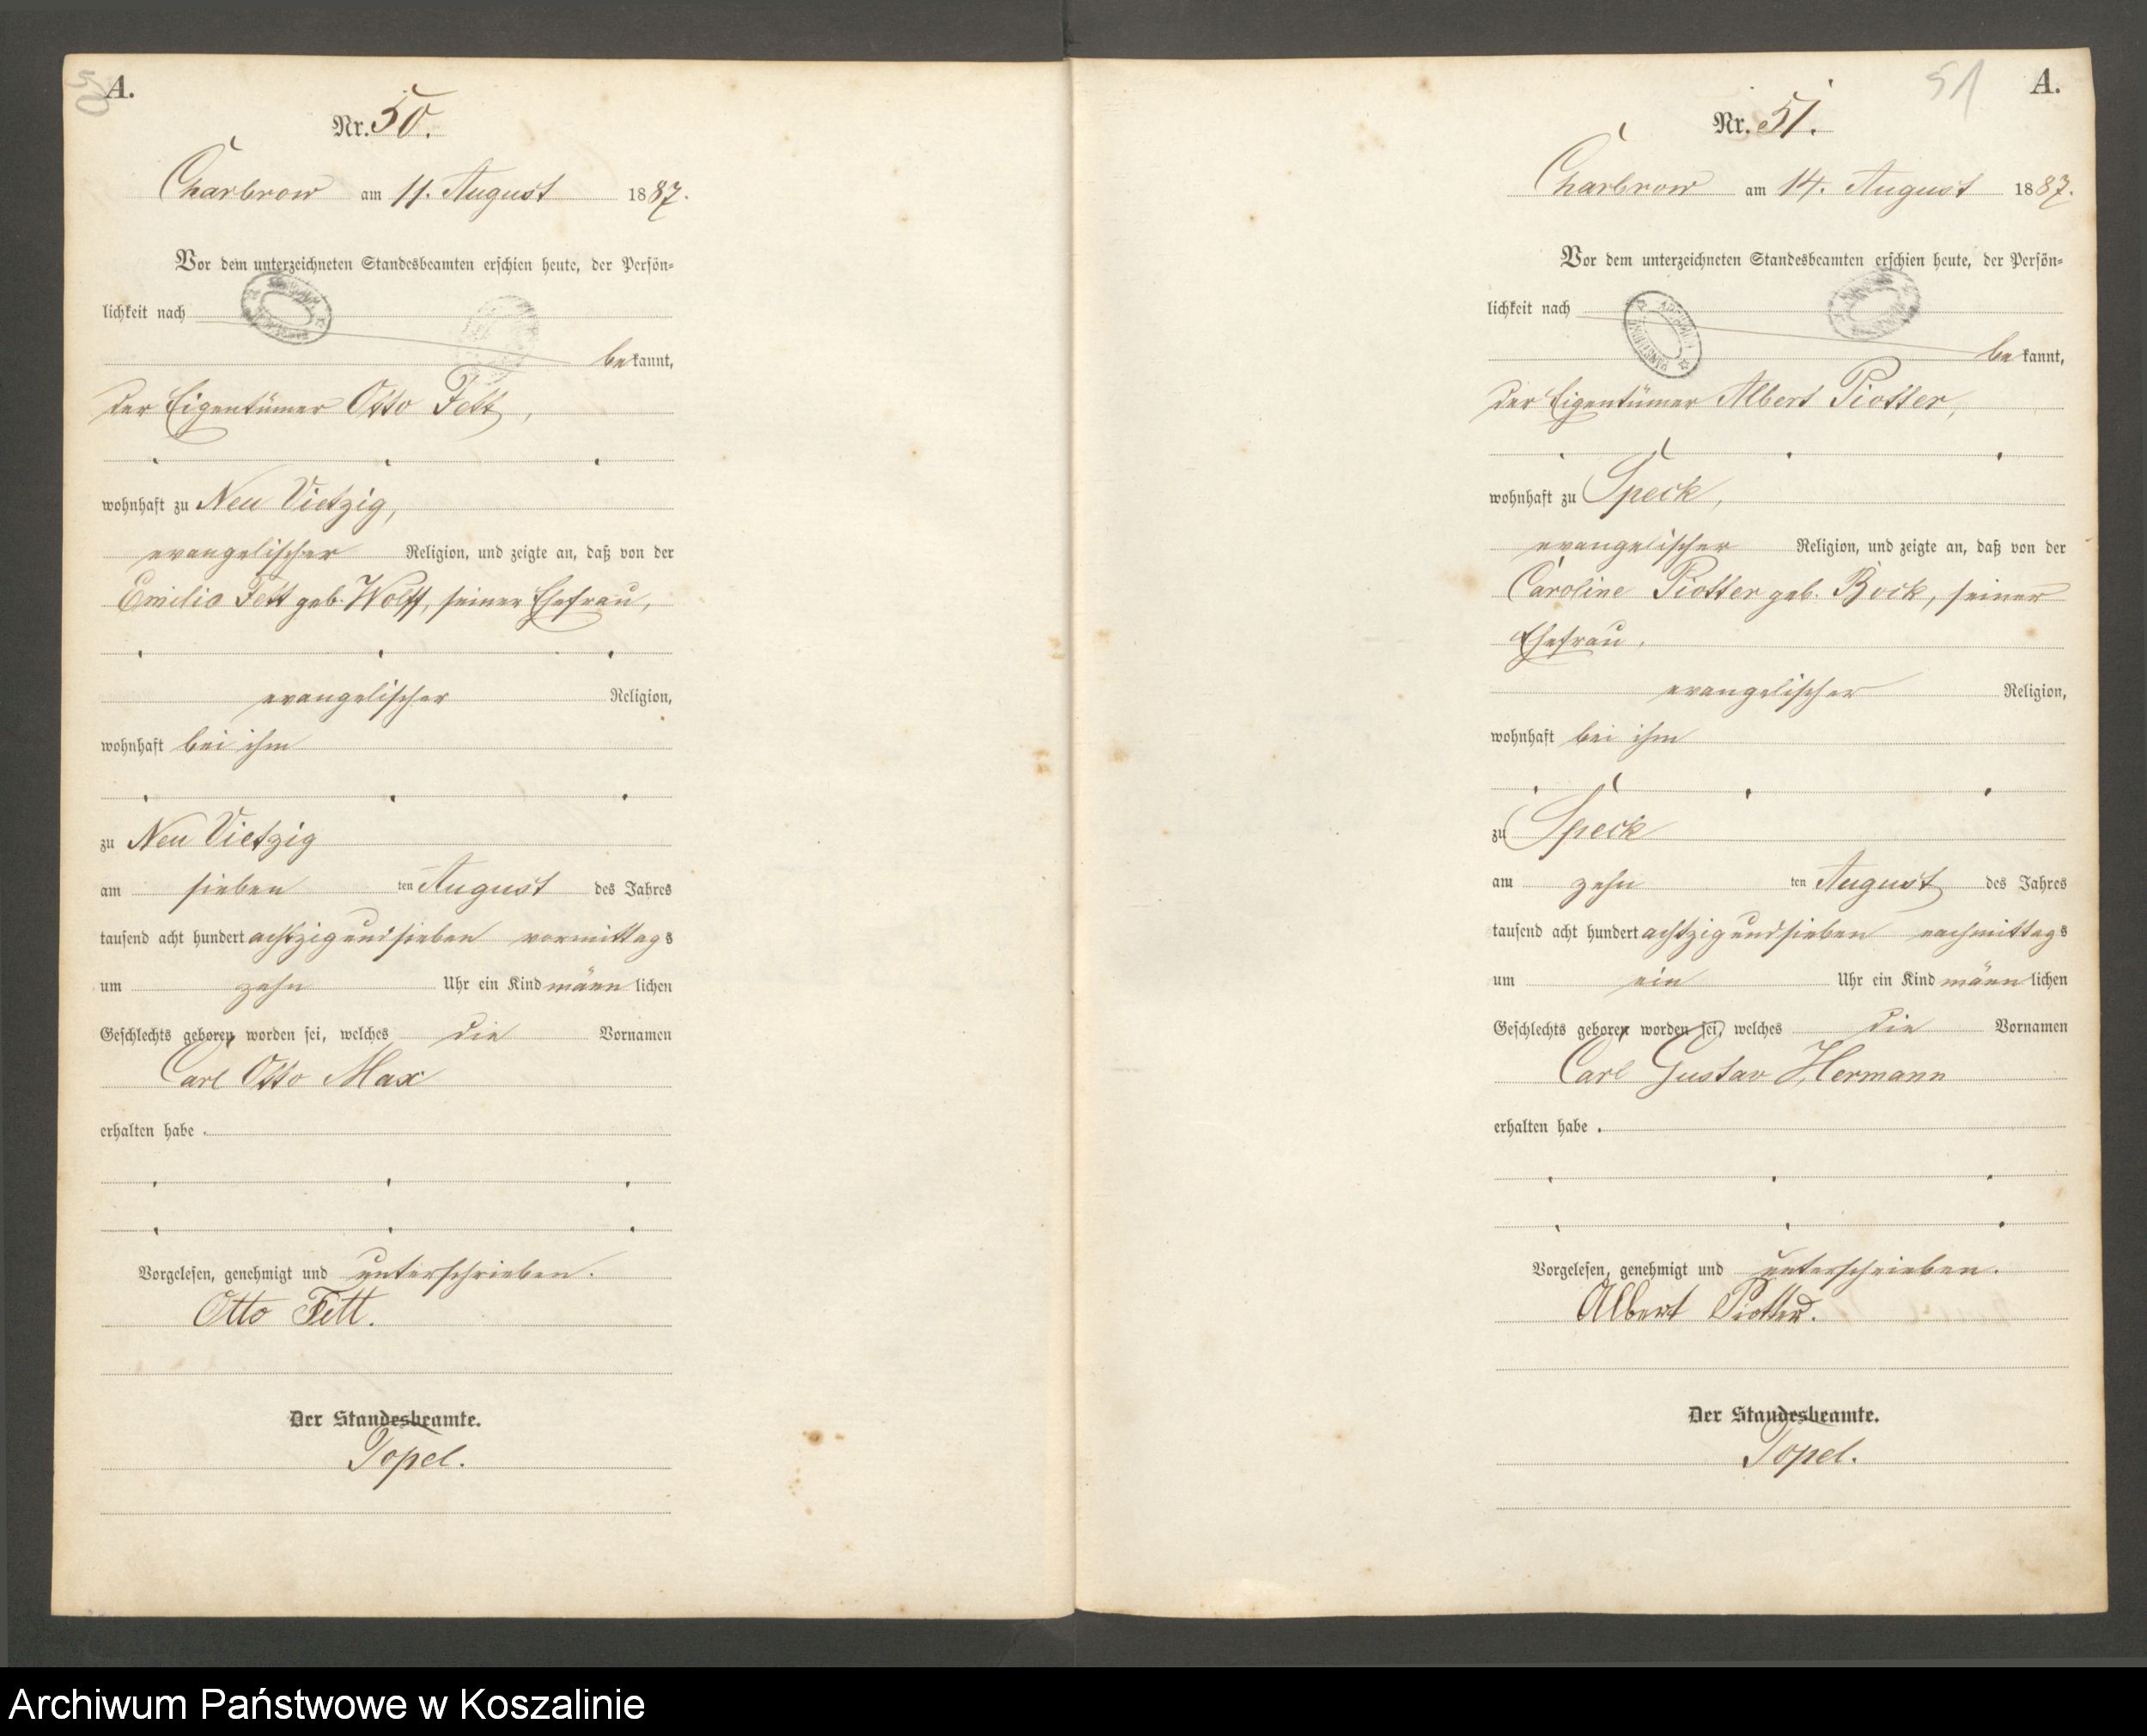 50
A.
Nr. 50.
Charbrow am 11. August 1887.
Vor dem unterzeichneten Standesbeamten erschien heute, der Persön-
lichkeit nach
bekannt,
der Eigentümer Otto Fett,
wohnhaft zu Neu Vietzig,
evangelischer Religion, und zeigte an, daß von der
Emilie Fett geb. Wolff, seiner Ehefrau,
evangelischer Religion,
wohnhaft bei ihm
zu Neu Vietzig
am sieben ten August des Jahres
tausend acht hundert achtzig und sieben vormittags
um zehn Uhr ein Kind männlichen
Geschlechts geboren worden sei, welches die Vornamen
Carl Otto Max
erhalten habe.
Vorgelesen, genehmigt und unterschrieben.
Otto Fett.
Der Standesbeamte.
Topel.
51
A.
Nr. 51.
Charbrow am 14. August 1887.
Vor dem unterzeichneten Standesbeamten erschien heute, der Persön-
lichkeit nach
bekannt,
der Eigentümer Albert Piotter,
wohnhaft zu Speck,
evangelischer Religion, und zeigte an, daß von der
Caroline Piotter geb. Bock, seiner
Ehefrau,
evangelischer Religion,
wohnhaft bei ihm
zu Speck
am zehn ten August des Jahres
tausend acht hundert achtzig und sieben nachmittags
um ein Uhr ein Kind männlichen
Geschlechts geboren worden sei, welches die Vornamen
Carl Gustav Hermann
erhalten habe.
Vorgelesen, genehmigt und unterschrieben.
Albert Piotter.
Der Standesbeamte.
Topel.
Archiwum Państwowe w Koszalinie